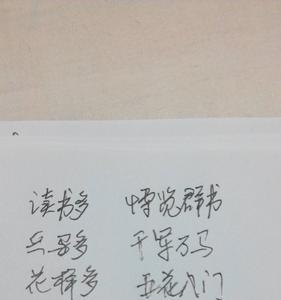 读书多 博览群书
兵马多 千军万马
花样多 五花八门